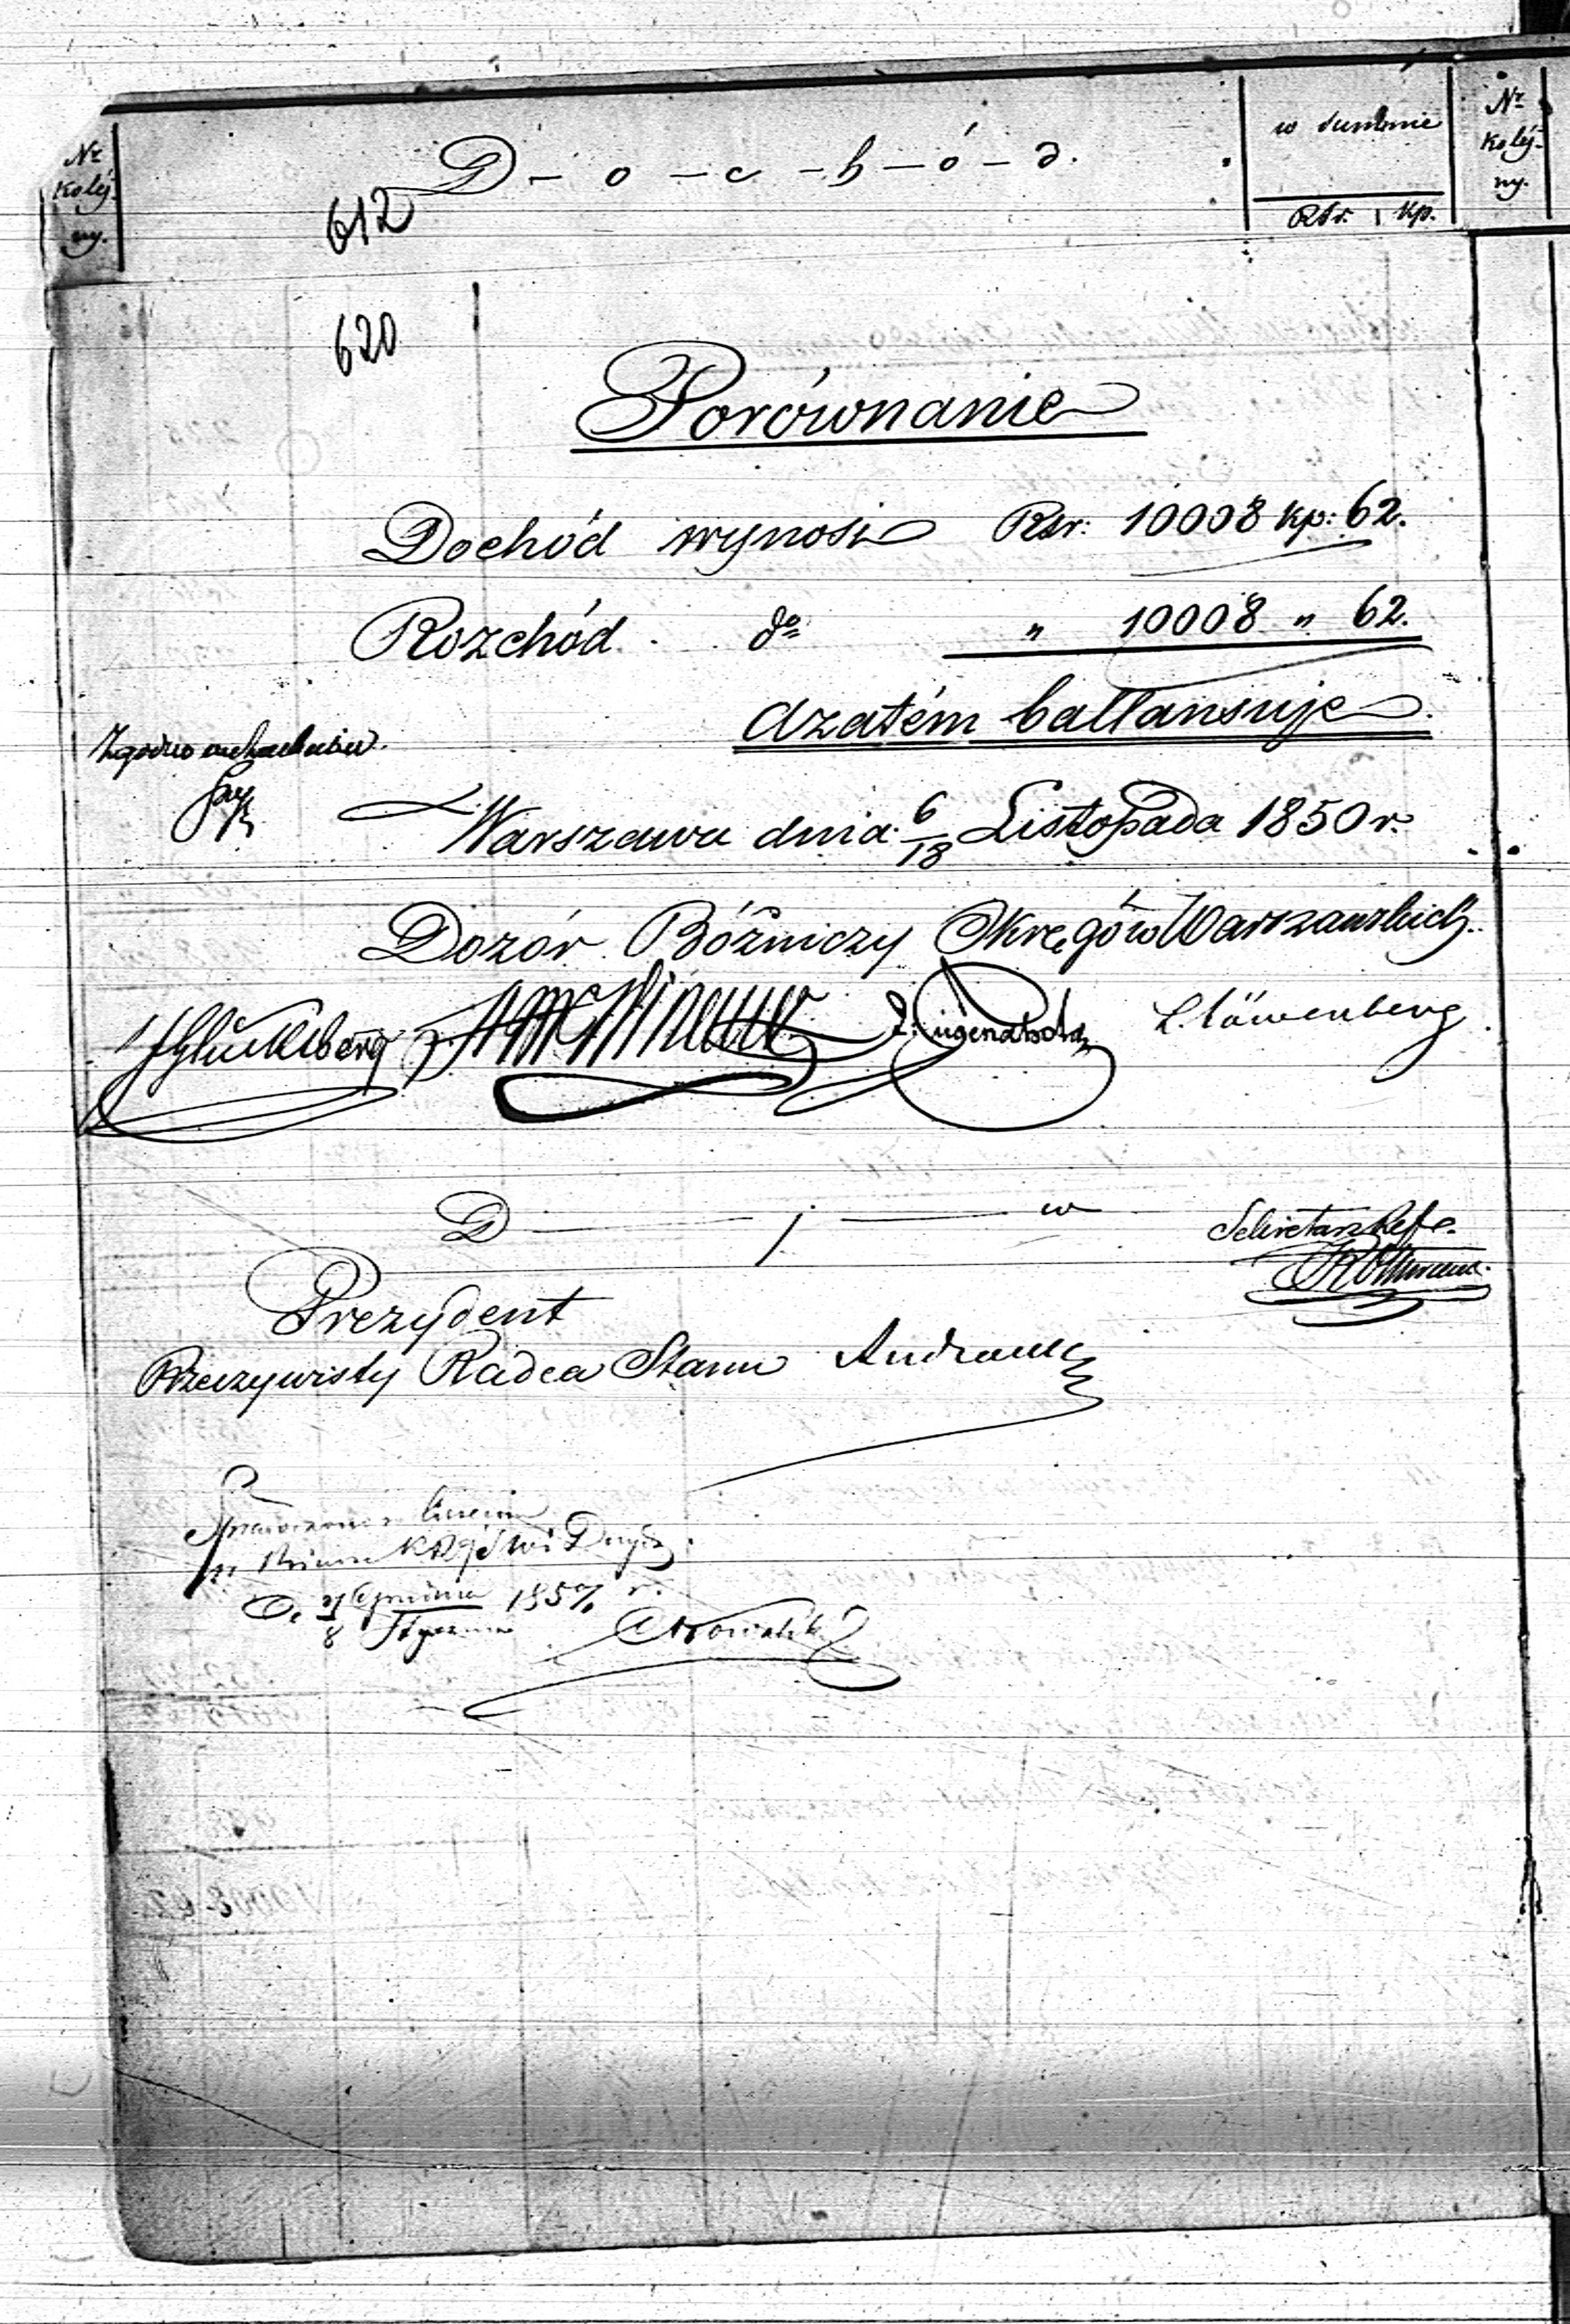 Nr kolej- ny.
D - o - c - h - ó - d.
w summie
Rsr. kp.
Nr kolej- ny.
612
620
Porównanie
Dochód wynosi Rsr: 10008 kp: 62.
Rozchód do „ 10008 „ 62.
azatém ballansuje
Zgodno
Warszawa dnia 6/18 Listopada 1850 r.
Dozór Bóźniczy Okręgów Warszawskich.
Glücksberg
L. Löwenberg
D j w
Sekretarz
Prezydent
Rzeczywisty Radca Stanu
Sprawdzono
w Biurze
D.
8 Stycznia
r.